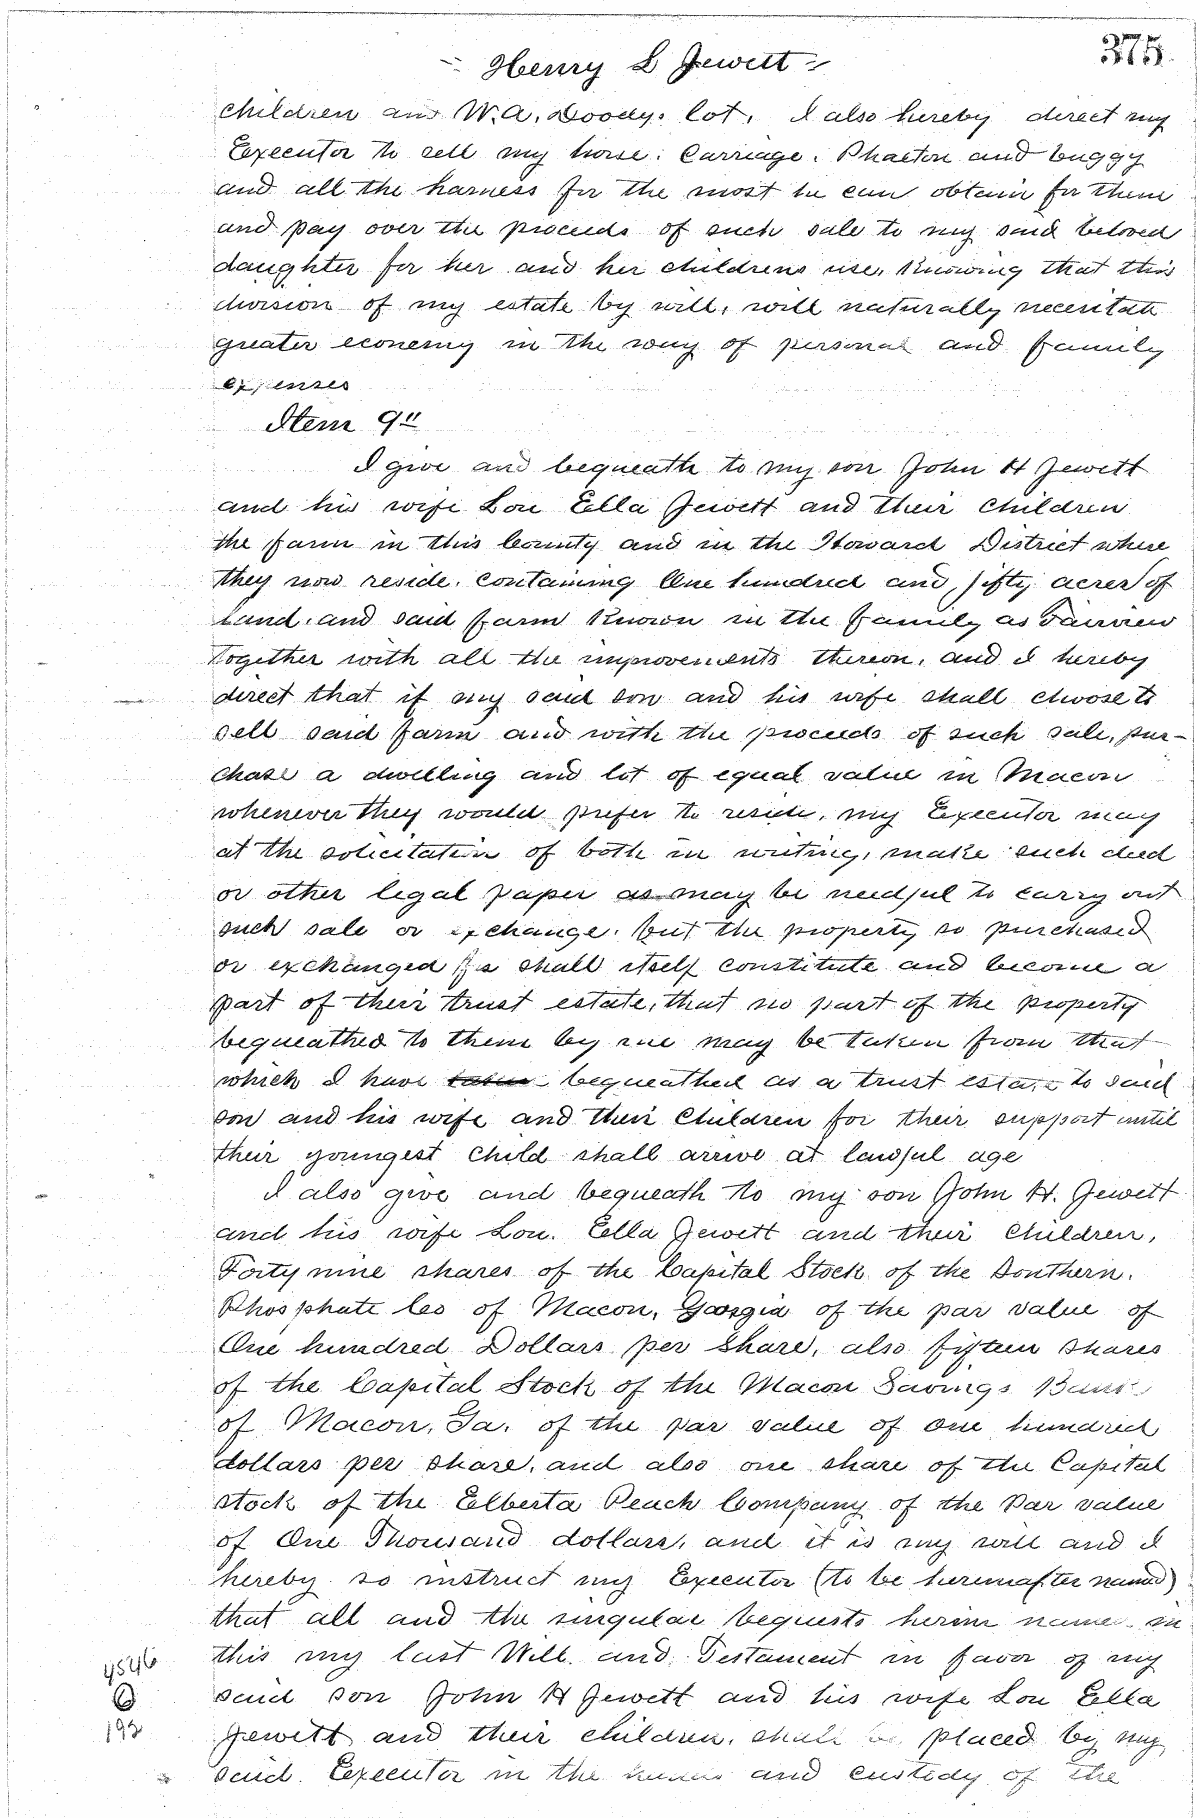 375
Henry L Jewett
children and W.A. Doody. lot. I also hereby direct my
Executor to sell my horse. Carriage. Phaeton and buggy
and all the harness for the most he can obtain for them
and pay over the proceeds of such sale to my said beloved
daughter for her and her childrens use. Knowing that this
division of my estate by will, will naturally necesitate
greater economy in the way of personal and family
expenses
Item 9"
I give and bequeath to my son John H Jewett
and his wife Lou Ella Jewett and their children
the farm in this County and in the Howard District where
they now reside. containing One hundred and fifty acres of
Land. and said farm Known in the family as Fairview
together with all the improvements thereon, and I hereby
direct that if my said son and his wife shall choose to
sell said farm and with the proceeds of such sale, pur-
chase a dwelling and lot of equal value in Macon
whenever they would prefer to reside, my Executor may
at the solicitation of both in writing, make such deed
or other legal paper as may be needful to carry out
such sale or exchange. but the property so purchased
or exchanged for shall itself constitute and become a
part of their trust estate, that no part of the property
bequeathed to them by me may be taken from that
which I have bequeathed as a trust estate to said
son and his wife and their Children for their support until
their youngest child shall arrive at lawful age
I also give and bequeath to my son John H. Jewett
and his wife Lou. Ella Jewett and their children,
Forty nine shares of the Capital Stock of the Southern.
Phosphate Cos of Macon, Georgia of the par value of
One hundred Dollars per share, also fifteen shares
of the Capital Stock of the Macon Savings Bank
of Macon, Ga. of the par value of one hundred
dollars per share. and also one share of the Capital
stock of the Elberta Peach Company of the Par value
of One Thousand dollars, and it is my will and I
hereby so instruct my Executor (to be hereinafter named)
that all and the singular bequests herein named in
this my last Will and Testament in favor of my
said son John H Jewett and his wife Lou Ella
Jewett and their children. shall be placed by my
said. Executor in the hands and custody of the
4546
192